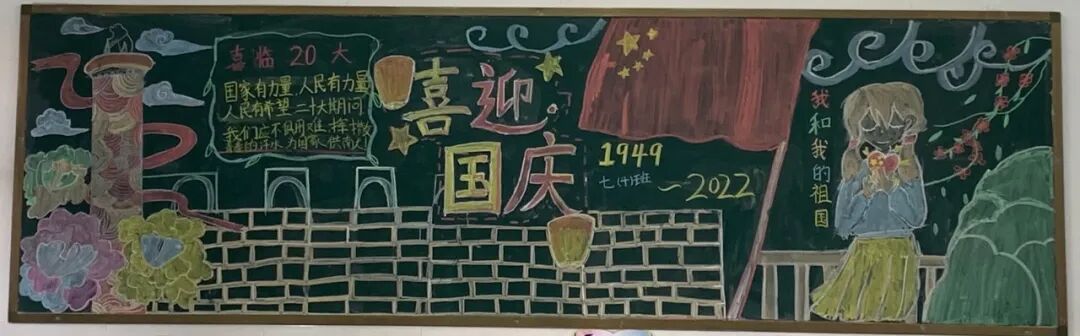 喜临20大
国家有力量,人民有力量
人民有希望,二十大期间
我们应不惧困难,挥撒
的汗水,为国家
喜迎
国庆
1949
七(4)班
~2022
我和我的祖国